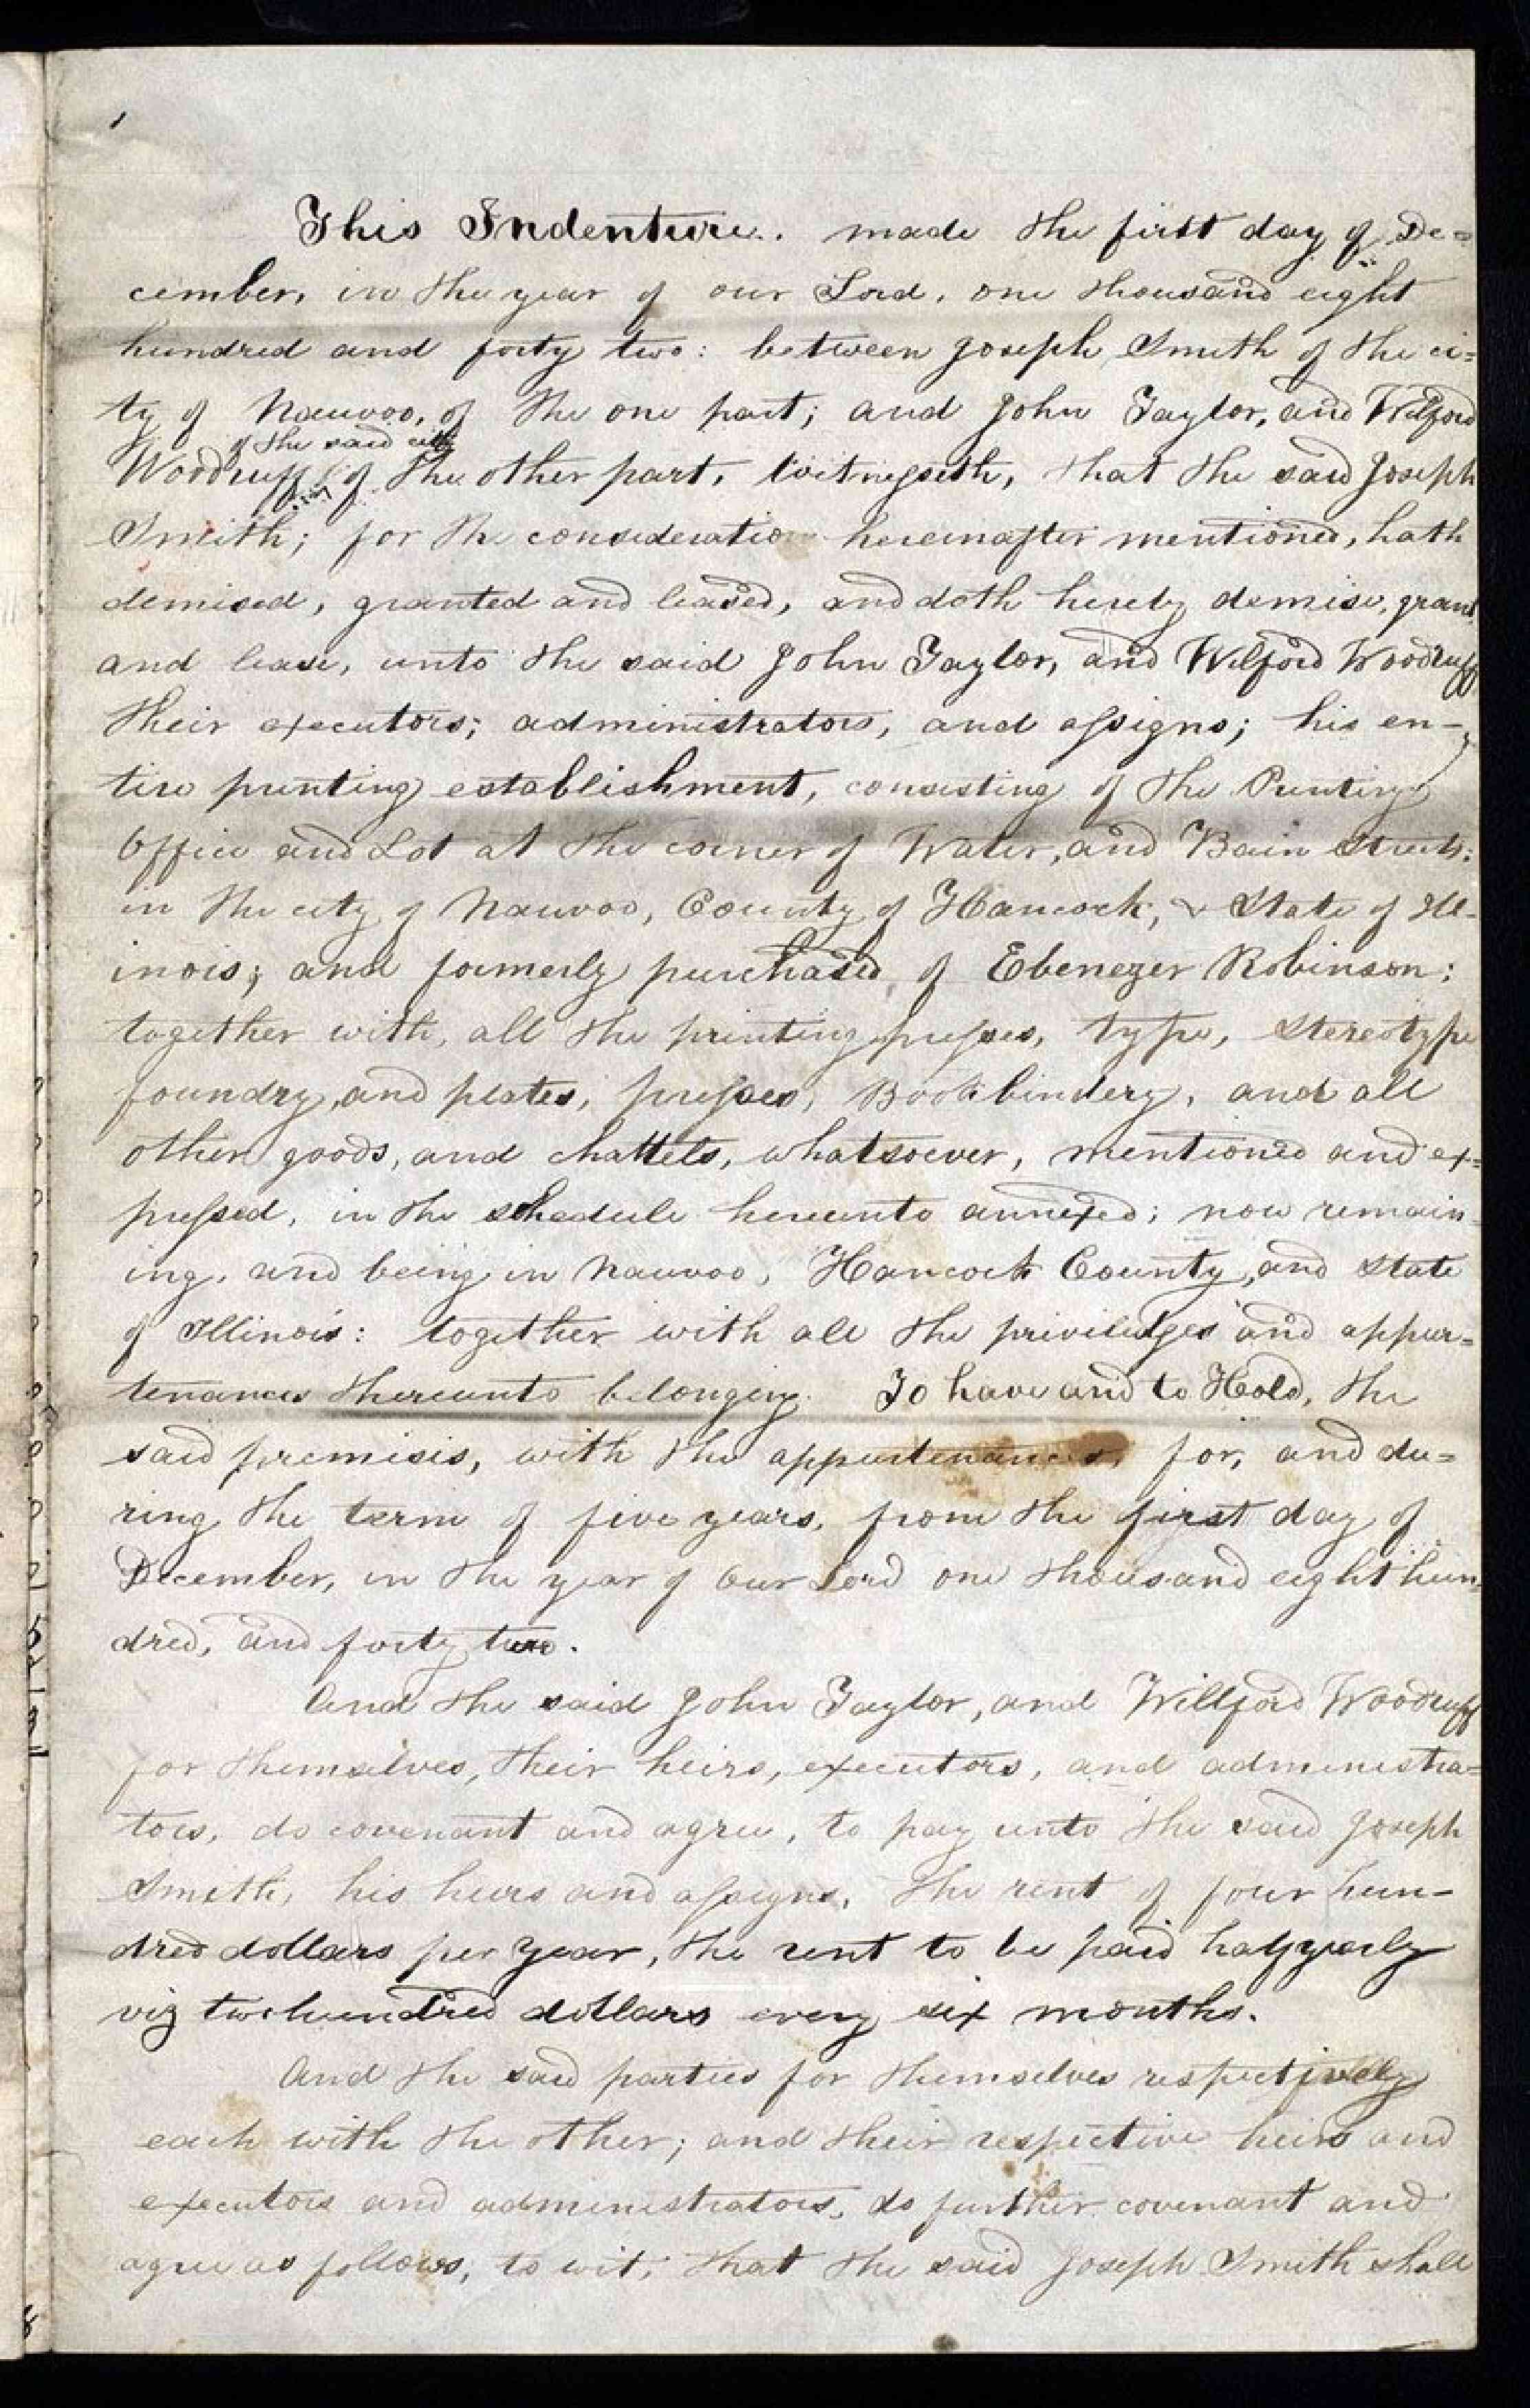 This Indenture. made the first day of De=
cember, in the year of our Lord, one thousand eight
hundred and forty two: between Joseph Smith of the ci=
ty of Nauvoo, of the one part; and John Taylor, and Wilford
of the said city
Woodruff of the other part, witnesseth, that the said Joseph
Smith; for the consideration hereinafter mentioned, hath
demised, granted and leased, and doth hereby demise, grant
and lease, unto the said John Taylor, and Wilford Woodruff
their executors; administrators, and assigns; his en-
tire printing establishment, consisting of the Printing
Office and Lot at the corner of Water, and Bain Streets;
in the city of Nauvoo, County of Hancock, & State of Ill-
inois; and formerly purchased, of Ebenezer Robinson;
together with, all the printing presses, type, stereotype
foundry, and plates, presses, Bookbindery, and all
other goods, and chattels, whatsoever, mentioned and ex=
pressed, in the schedule hereunto annexed; now remain-
ing, and being in Nauvoo, Hancock County, and State
of Illinois: together with all the priviledges and appur=
tenances thereunto belonging. To have and to Hold, the
said premisis, with the appurtenances, for, and du=
ring the term of five years, from the first day of
December, in the year of our Lord one thousand eight hun-
dred, and forty two.
And the said John Taylor, and Willford Woodruff
for themselves, their heirs, executors, and administra=
tors, do covenant and agree, to pay unto the said Joseph
Smith, his heirs and assigns, the rent of four hun-
dred dollars per year, the rent to be paid half yearly
viz two hundred dollars every six months.
And the said parties for themselves respectively
each with the other; and their respective heirs and
executors and administrators, do further covenant and
agree as follows, to wit; that the said Joseph Smith shall